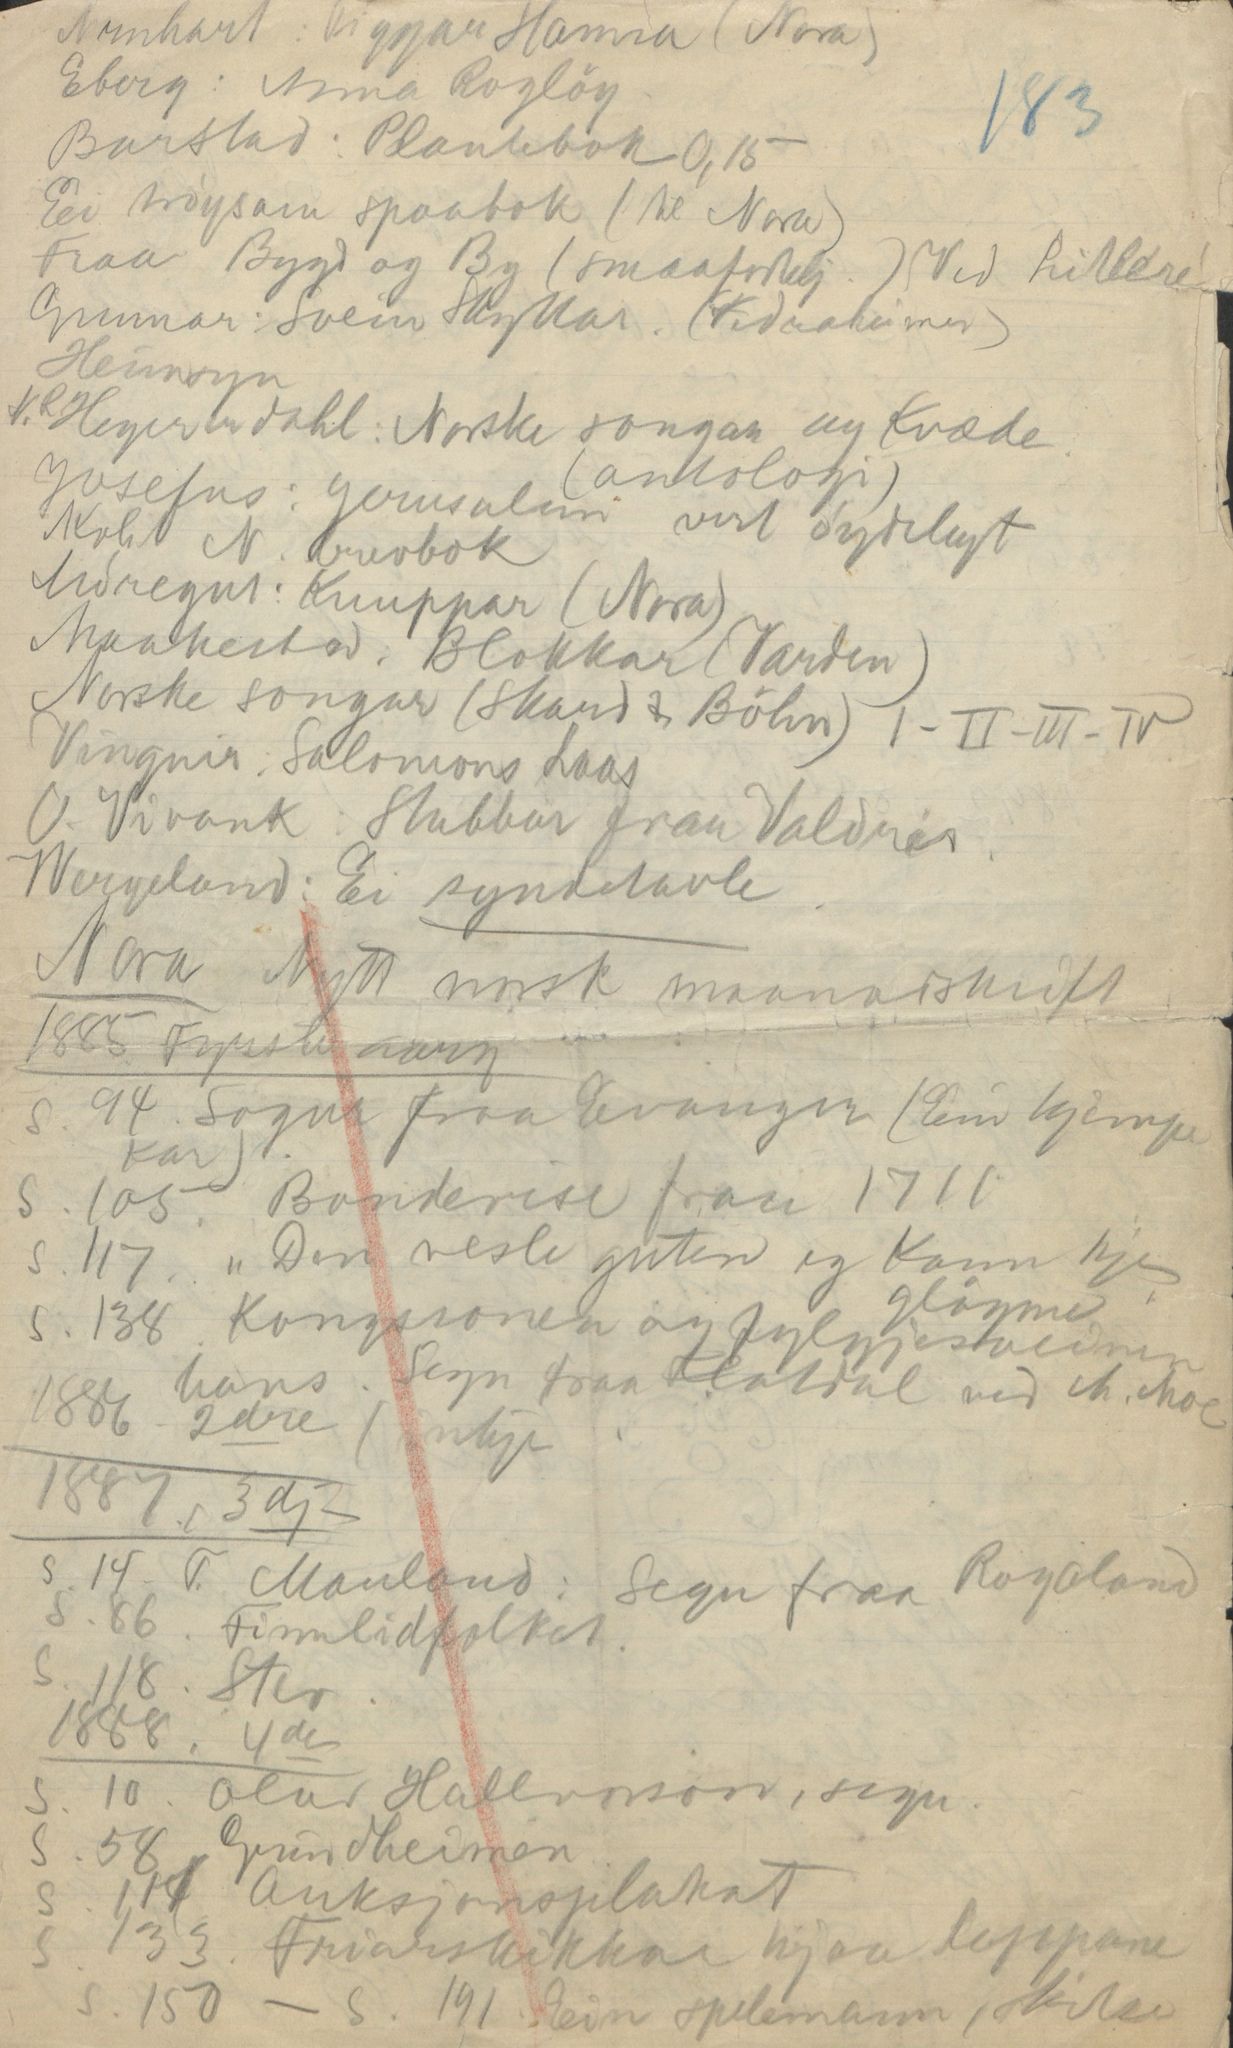 183
Hanna (Nora)
Eberg: Anna Rogløy
Barstad: Plantebok 0,15
Ei tröysam spaabok (til Nora)
Fraa Bygd og By (smaafortelj.) (Ved
Gunnar: Svein Skyttar. (Vidraheimen)
Heimsyn
Hegermdahl: Norske songar og Kvæde
(antologi)
Josefus: Jerusalem vert öydelagt
N. brevbok
Möregut: Knuppar (Nora)
Maakestad: Blokkar (Varden)
Norske songar (Skard & Böhn) I-II-III-IV
Vingnir: Salomons Laas
O. Vivank: Stubbar fraa Valdris.
Wergeland: Ei syndetavle.
Nora Nytt norsk maanadskrift
1885 Fyrste aarg
S. 94. Sogur fraa Evanger (Ein kjempe
kar).
S. 105. Bondevise fraa 1711
S. 117. "Den vesle guten eg kann kje
glöyme"
S. 138. Kongssonen og fylgjesveinen
hans. Segn fraa Flatdal ved M. Moe
1886 2dre (inkje
1887. 3dj
S. 14. T. Mauland: Segn fraa Rogaland
S. 86. Finnlidfolket.
S. 118. Stev.
1888. 4de
S. 10. Olav Hallvorson, segn.
S. 58. Grindheimen
S. 114 Auksjonsplakat
S. 133. Friarskikkar hjaa lappane
S. 150 — S. 191. Ein spelemann, skilse